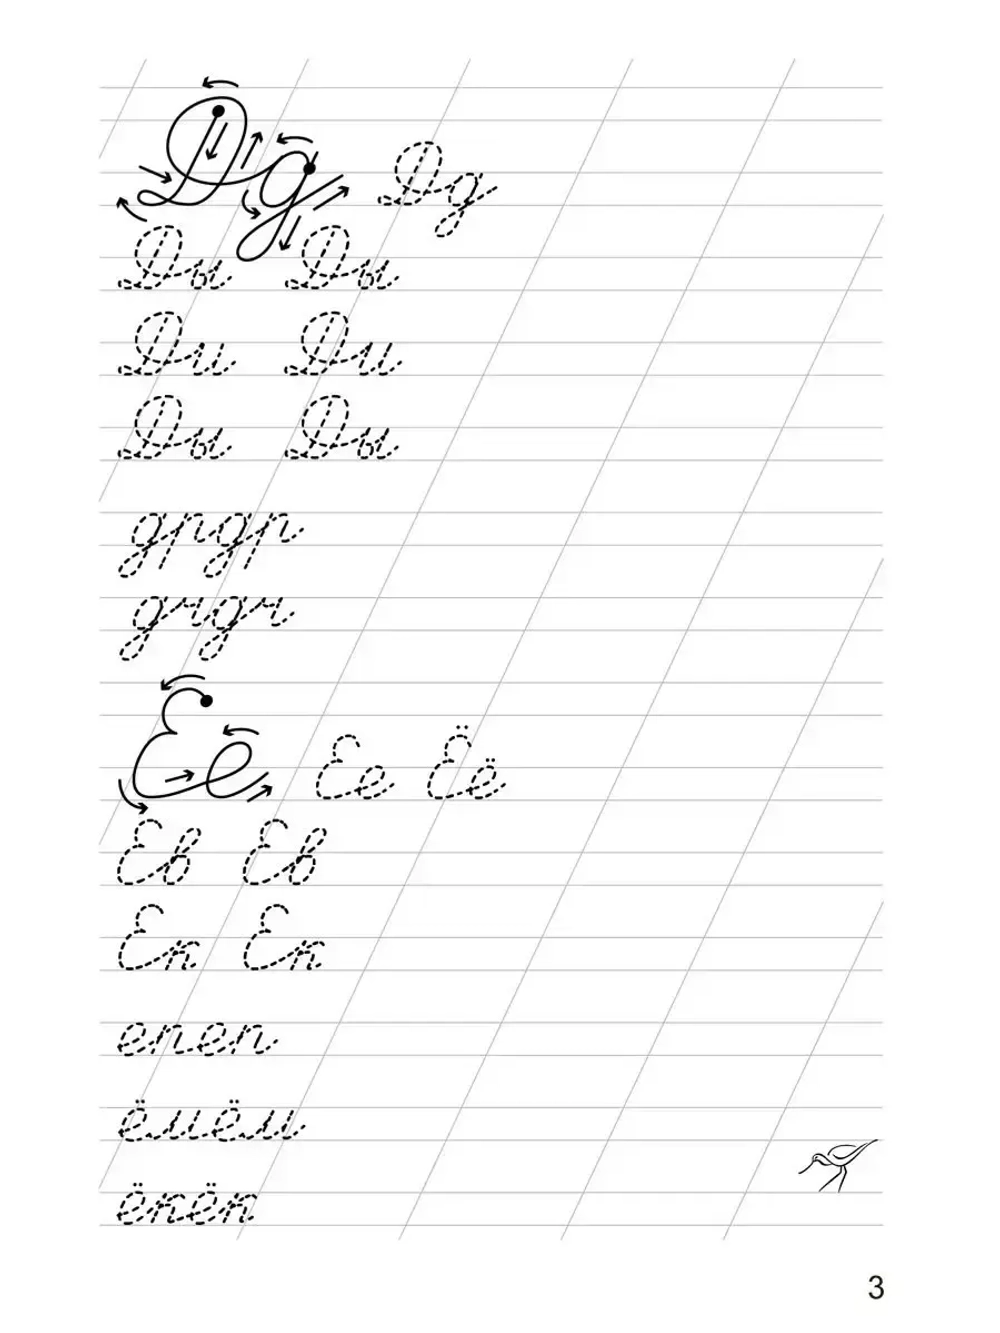 Дд Дд
Ды Ды
Ди Ди
Ды Ды
дрдр
дгдг
Ее Ее Ёё
Ев Ев
Ек Ек
епеп
ёмём
ёкёк
3